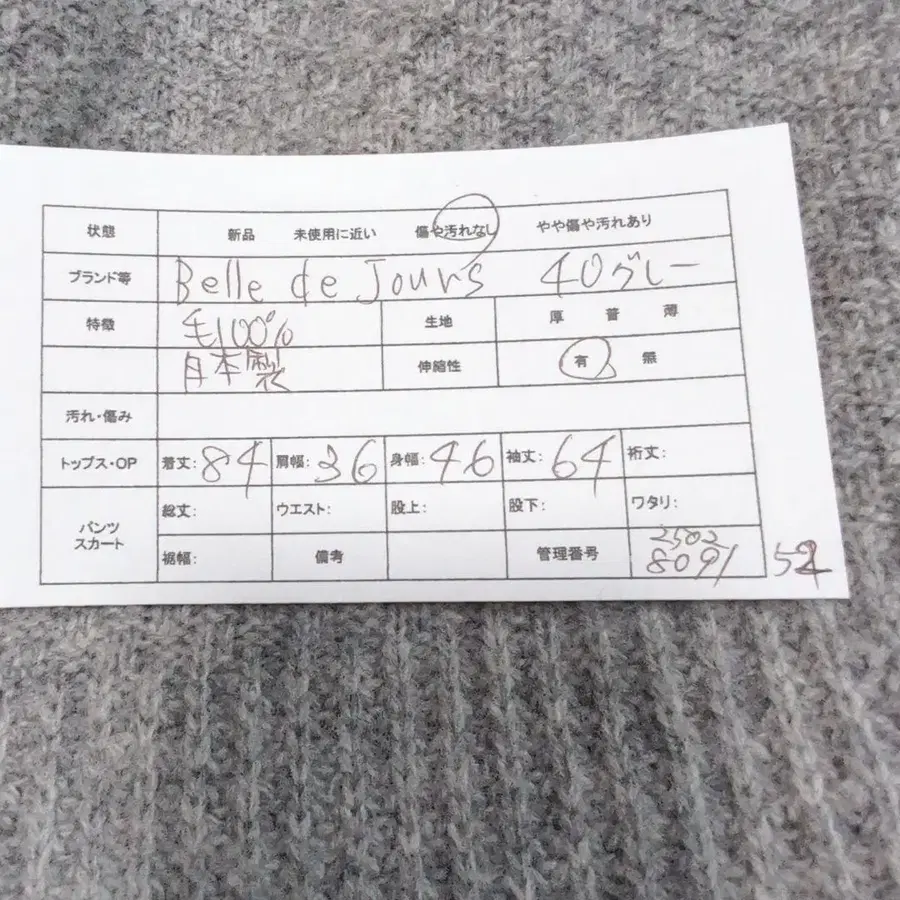 状態 新品 未使用に近い 傷や汚れなし やや傷や汚れあり
ブランド等 Belle de Jours 40グレー
特徴 毛100% 生地 厚 普 薄
日本製 伸縮性 有 無
汚れ・傷み
トップス・OP 着丈:84 肩幅:36 身幅:46 袖丈:64 裄丈:
パンツ スカート 総丈: ウエスト: 股上: 股下: ワタリ:
裾幅: 備考 管理番号 2502
8091